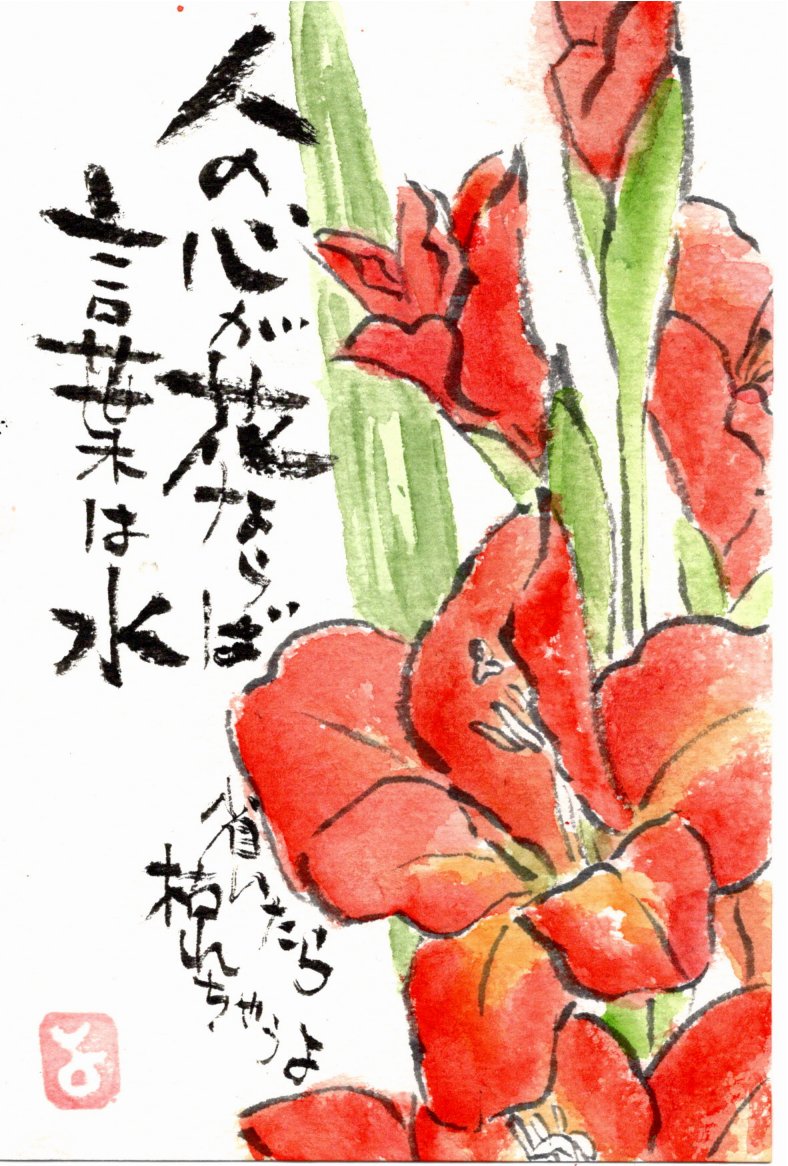 人の心が花ならば
言葉は水
省いたら
枯れちゃうよ